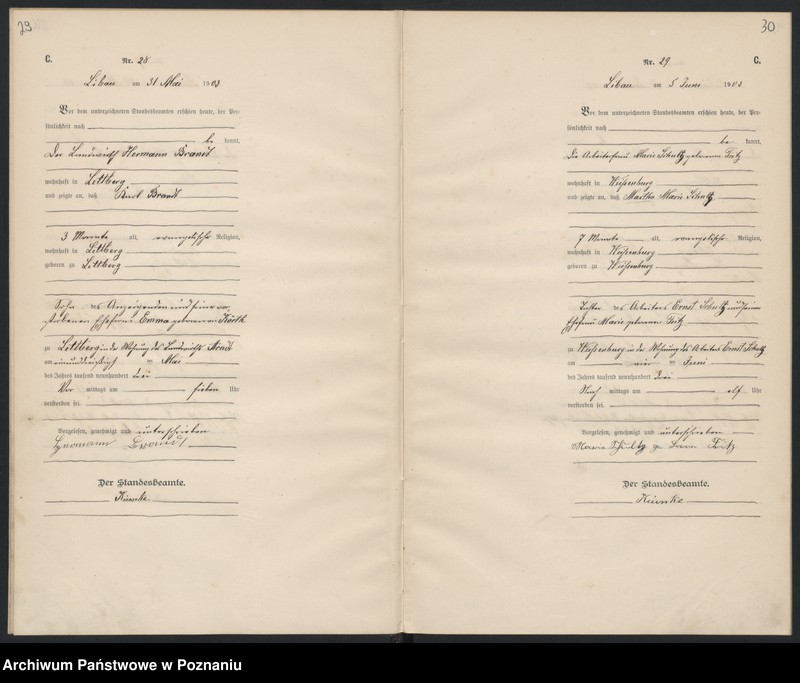 29
C.
Nr. 28
Libau am 31 Mai 1903
Vor dem unterzeichneten Standesbeamten erschien heute, der Per-
sönlichkeit nach
be kannt,
Der Landwirth Hermann Brandt
wohnhaft in Lettberg
und zeigte an, daß Karl Brandt
3 Monate alt, evangelischer Religion,
wohnhaft in Lettberg
geboren zu Lettberg
Sohn des Anzeigenden und seiner ver
storbenen Ehefrau Emma geborenen
zu Lettberg in der Wohnung des Landwirths
am einunddreißigsten Mai
des Jahres tausend neunhundert drei
Vor mittags um sieben Uhr
verstorben sei.
Vorgelesen, genehmigt und unterschrieben
Hermann Brandt
Der Standesbeamte.
Künnke
30
Nr. 29
C.
Libau am 5 Juni 1903
Vor dem unterzeichneten Standesbeamten erschien heute, der Per-
sönlichkeit nach
be kannt,
Die Arbeiterfrau Marie Schultz geborene
wohnhaft in Weißenburg
und zeigte an, daß Martha Marie Schultz
7 Monate alt, evangelischer Religion,
wohnhaft in Weißenburg
geboren zu Weißenburg
Tochter des Arbeiters Ernst Schultz und seiner
Ehefrau Marie geborenen
zu Weißenburg in der Wohnung des Arbeiters Ernst Schultz
am vier ten Juni
des Jahres tausend neunhundert drei
Nach mittags um elf Uhr
verstorben sei.
Vorgelesen, genehmigt und unterschrieben
Marie Schultz
Der Standesbeamte.
Künnke
Archiwum Państwowe w Poznaniu